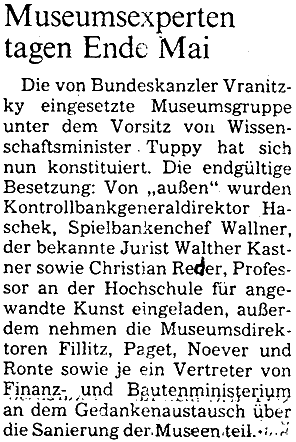 Museumsexperten
tagen Ende Mai
Die von Bundeskanzler Vranitz-
ky eingesetzte Museumsgruppe
unter dem Vorsitz von Wissen-
schaftsminister Tuppy hat sich
nun konstituiert. Die endgültige
Besetzung: Von „außen“ wurden
Kontrollbankgeneraldirektor Ha-
schek, Spielbankenchef Wallner,
der bekannte Jurist Walther Kast-
ner sowie Christian Reder, Profes-
sor an der Hochschule für ange-
wandte Kunst eingeladen, außer-
dem nehmen die Museumsdirek-
toren Fillitz, Paget, Noever und
Ronte sowie je ein Vertreter von
Finanz- und Bautenministerium
an dem Gedankenaustausch über
die Sanierung der Museen teil.